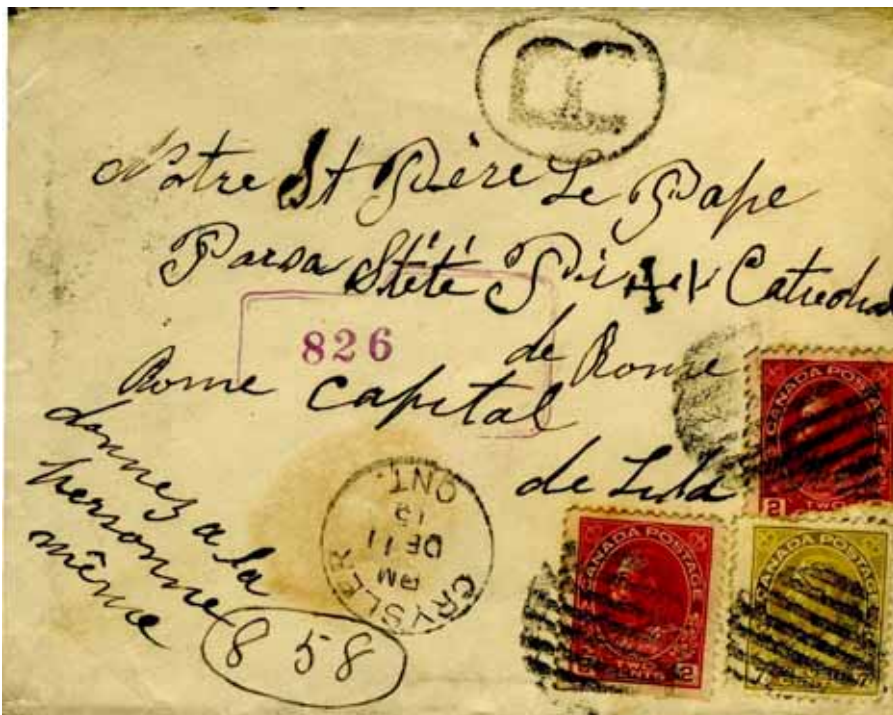 R
Notre St Père Le Pape
Parsa Stété Pi XI Catholi
826
de Rome
Rome Capital
de
donnez a la
personne
même
CRYSLER
AM
DE 11
ONT.
858
CANADA POSTAGE
2 TWO
CANADA POSTAGE
TWO 2
CENTS
CANADA POSTAGE
7 7